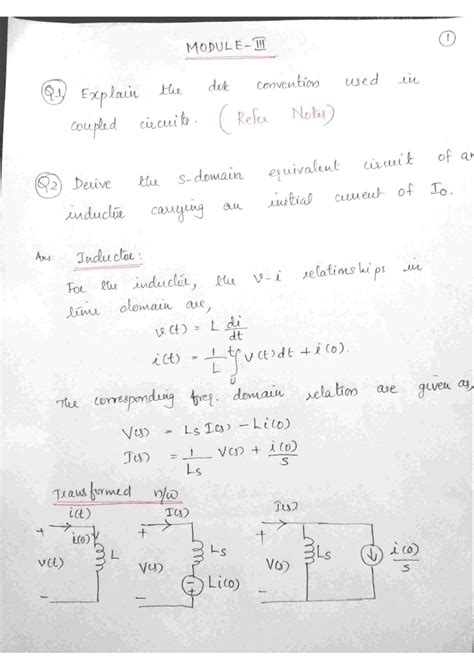 MODULE-III
1
Q1 Explain the dot convention used in
coupled circuits. (Refer Notes)
Q2 Derive the s-domain equivalent circuit of an
inductor carrying an initial current of I₀.
Ans: Inductor:
For the inductor, the v-i relationships in
time domain are,
v(t) = L di/dt
i(t) = 1/L ∫₀ᵗ v(t)dt + i(0).
The corresponding freq. domain relation are given as,
V(s) = Ls I(s) – Li(0)
I(s) = 1/Ls V(s) + i(0)/s
Transformed n/w
i(t) I(s) I(s)
+ i(0) L + Ls + Ls i(0)/s
v(t) V(s) - + Li(0) V(s)
– – –